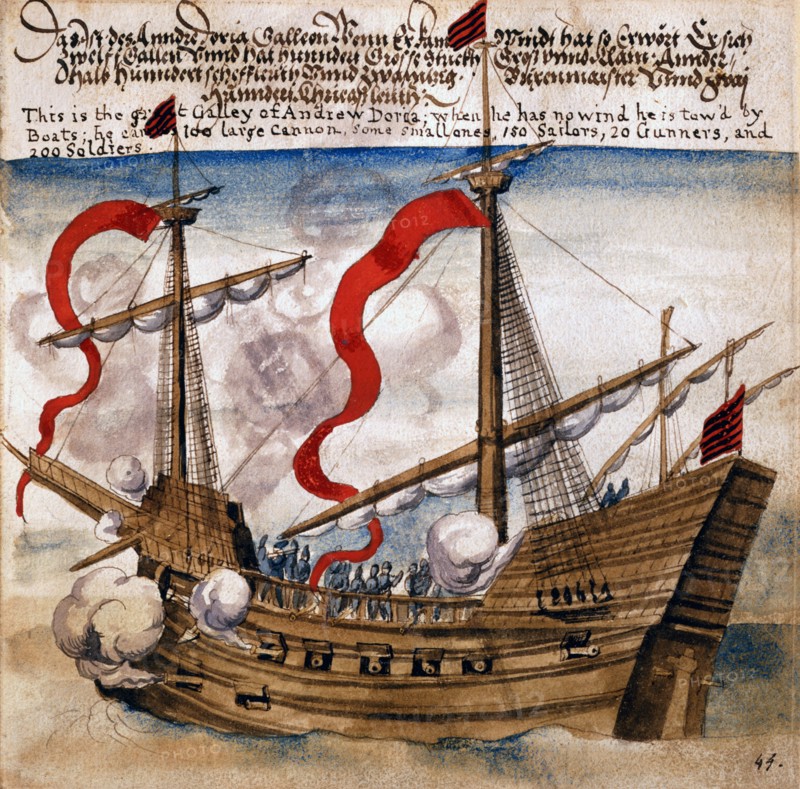 Das Ist des Anndre Doria Galleon Wenn Er kain Windt hat so Erwört Er sich
Zwelff Gallen Vnnd hat hunndert Grosse stuckh Gros vnnd klain Annder-
thalb Hunndert scheffleuth Vnnd Zwainzig Buxenmaister Vnnd zwaj
Hunndert khriegsleuth.
This is the great Galley of Andrew Doria; when he has no wind he is tow'd by
Boats; he 100 large Cannon, some small ones, 150 Sailors, 20 Gunners, and
200 Soldiers.
PHOTO12